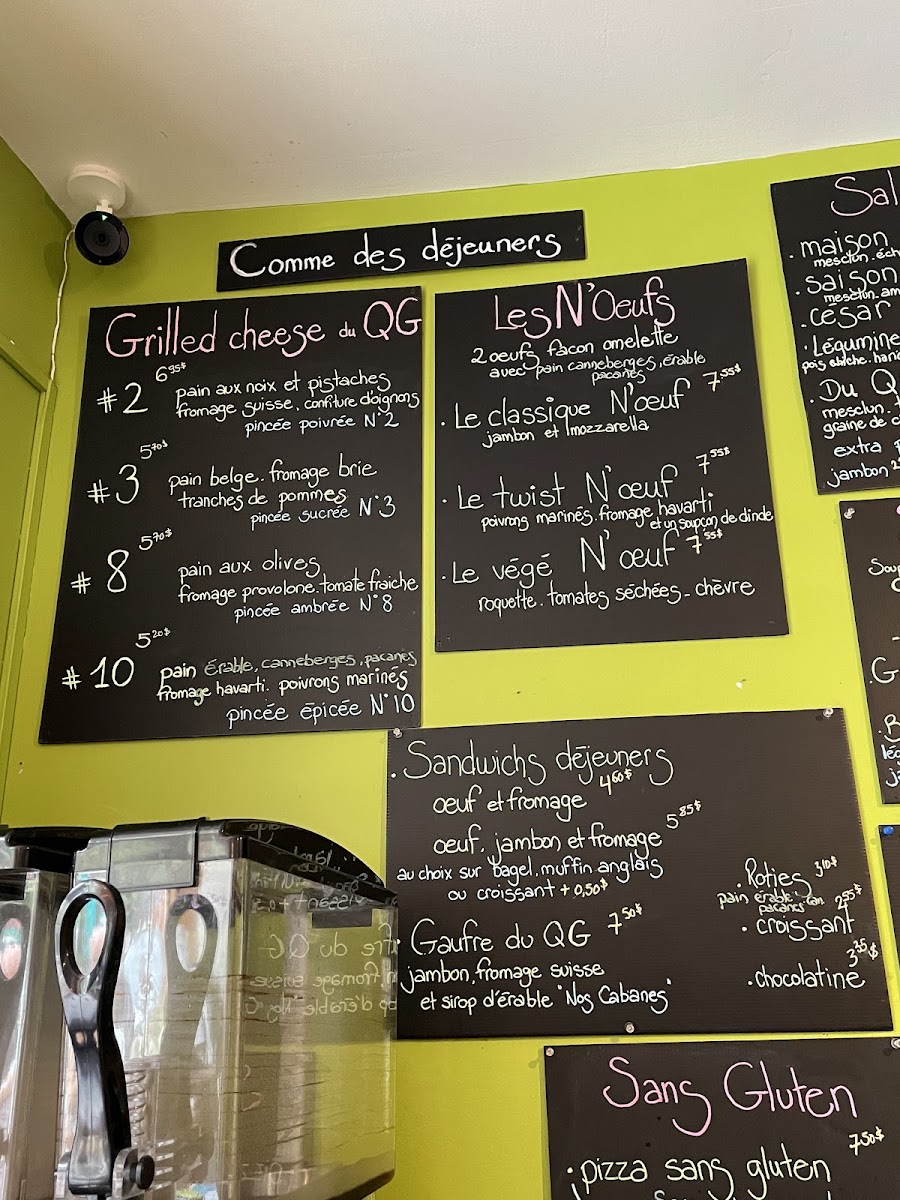 Comme des déjeuners
Grilled cheese du QG
#2 6 95$
pain aux noix et pistaches
fromage suisse, confiture d'oignons
pincée poivrée N°2
#3 5 70$
pain belge. fromage brie
tranches de pommes
pincée sucrée N°3
#8 5 70$
pain aux olives
fromage provolone. tomate fraiche
pincée ambrée N°8
#10 5 20$
pain érable, canneberges, pacanes
fromage havarti. poivrons marinés
pincée épicée N°10
Les N'Oeufs
2 oeufs façon omelette
avec pain canneberges, érable
pacanes
. Le classique N'œuf 7 55$
jambon et mozzarella
. Le twist N'œuf 7 55$
poivrons marinés. fromage havarti
et un soupçon de dinde
. Le végé N'œuf 7 55$
roquette. tomates séchées - chèvre
. Sandwichs déjeuners
oeuf et fromage 4 60$
oeuf, jambon et fromage 5 85$
au choix sur bagel, muffin anglais
ou croissant + 0,50$
. Gaufre du QG 7 50$
jambon, fromage suisse
et sirop d'érable "Nos Cabanes"
. Roties 3 10$
pain érable. can
pacanes
. croissant 2 55$
. chocolatine 3 35$
Sal
. maison
mesclun. éch
. saison
mesclun. am
. césar
. Légumine
pois chiche. hari
. Du Q
mesclun.
graine de c
extra
jambon 2
Soup
G
. B
lég
ja
Sans Gluten
. pizza sans gluten 7 50$